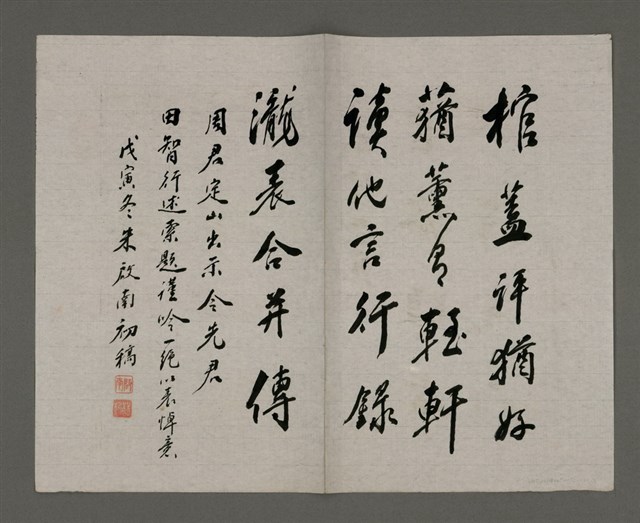 棺蓋評猶好
蕕薰有輊軒
讀他言行錄
瀧表合并傳
周君定山出示令先君
田智行述索題謹吟一絕以表悼意
戊寅冬朱啟南初稿